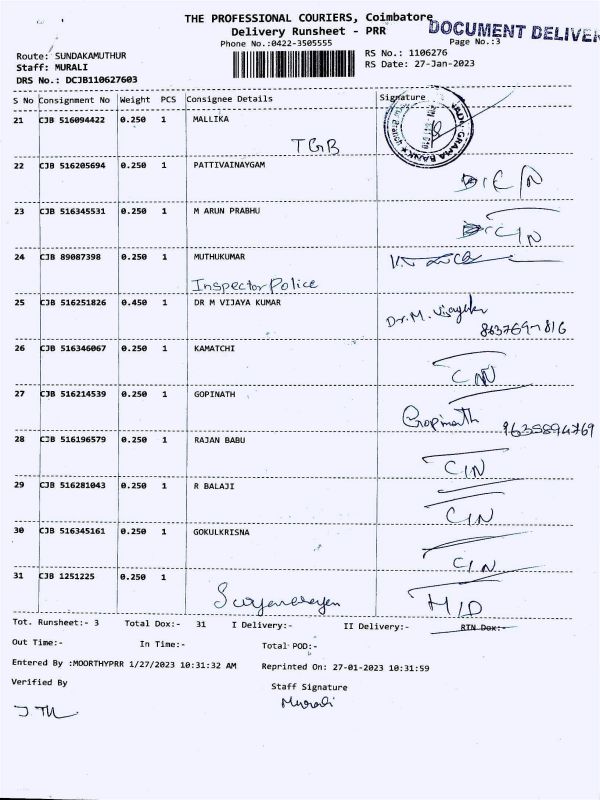 THE PROFESSIONAL COURIERS, Coimbatore
DOCUMENT DELIVER
Delivery Runsheet - PRR
Phone No.:0422-3505555
Page No.:3
Route: SUNDAKAMUTHUR
RS No.: 1106276
Staff: MURALI
RS Date: 27-Jan-2023
DRS No.: DCJB110627603
S No Consignment No Weight PCS Consignee Details Signature
21 CJB 516094422 0.250 1 MALLIKA
TGB
22 CJB 516205694 0.250 1 PATTIVAINAYGAM
23 CJB 516345531 0.250 1 M ARUN PRABHU
CIN
24 CJB 89087398 0.250 1 MUTHUKUMAR
Inspector Police
25 CJB 516251826 0.450 1 DR M VIJAYA KUMAR
Dr. M. Vijayakr
26 CJB 516346067 0.250 1 KAMATCHI
27 CJB 516214539 0.250 1 GOPINATH
Gopinath
28 CJB 516196579 0.250 1 RAJAN BABU
CIN
29 CJB 516281043 0.250 1 R BALAJI
CIN
30 CJB 516345161 0.250 1 GOKULKRISNA
CIN
31 CJB 1251225 0.250 1
Tot. Runsheet:- 3 Total Dox:- 31 I Delivery:- II Delivery:- RTN Dox:-
Out Time:- In Time:- Total POD:-
Entered By :MOORTHYPRR 1/27/2023 10:31:32 AM Reprinted On: 27-01-2023 10:31:59
Verified By
Staff Signature
Murali